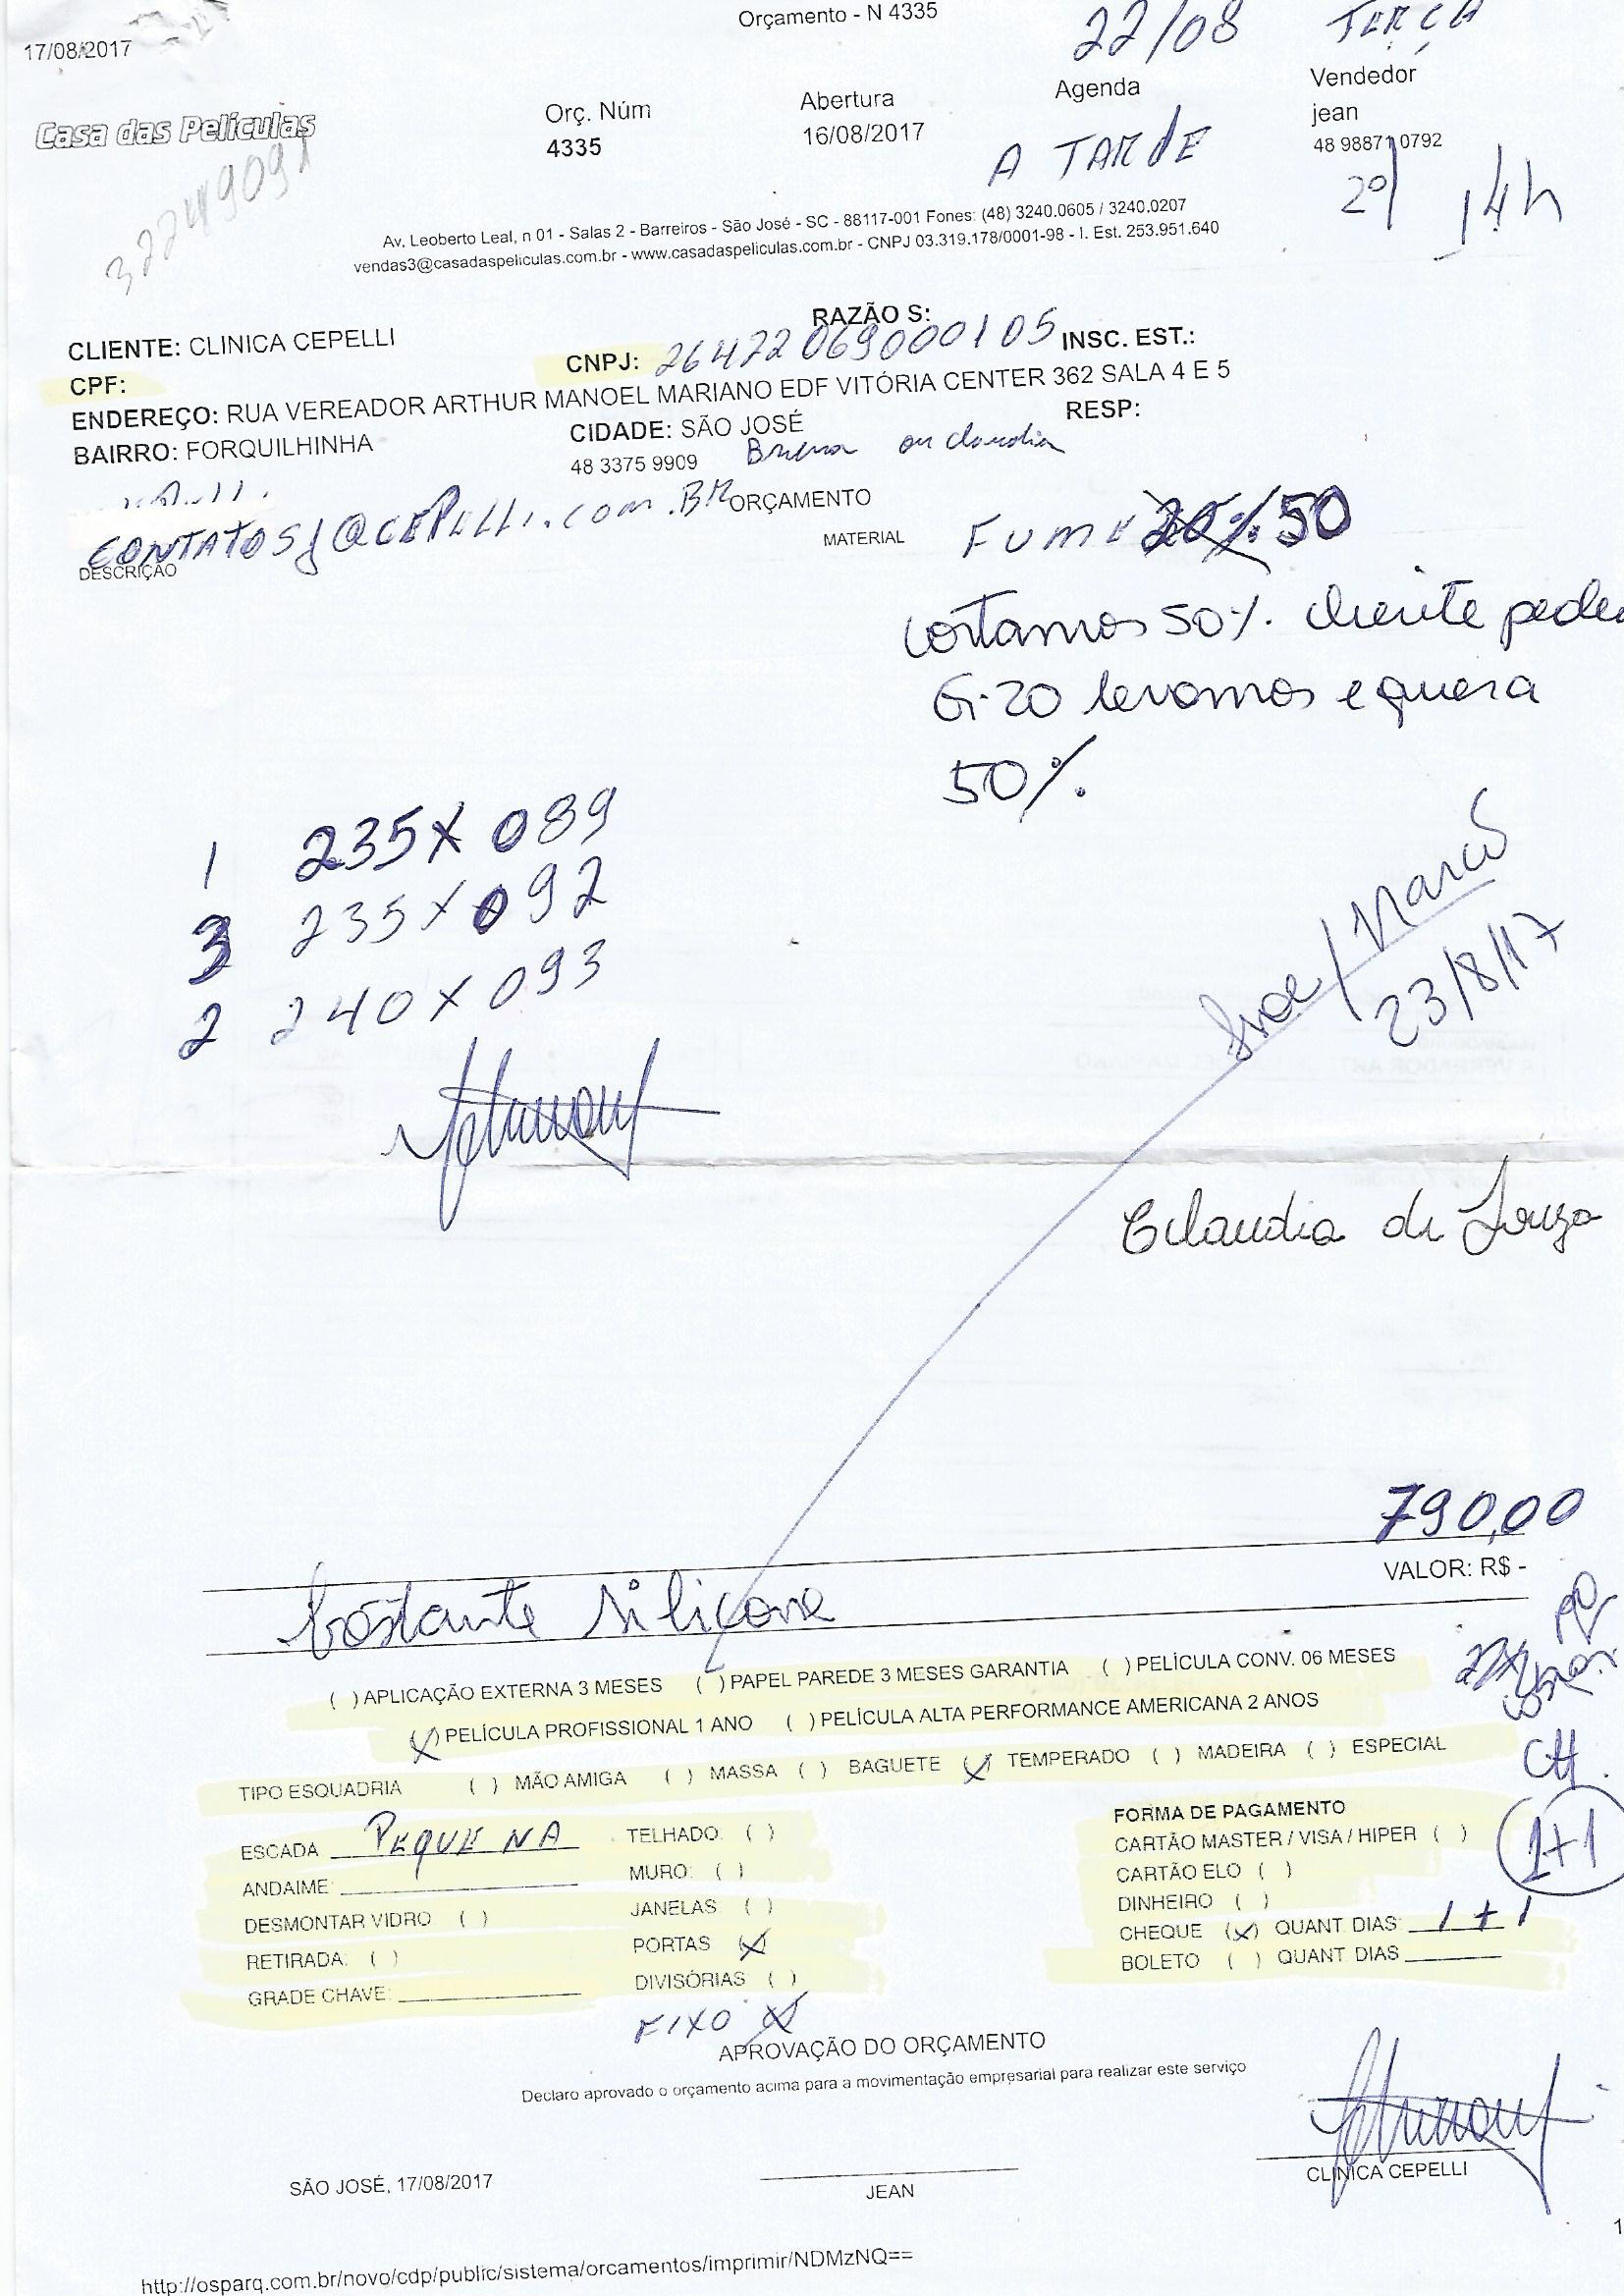 Orçamento - N 4335
17/08/2017
22/08 TERÇA
Casa das Películas
Orç. Núm
4335
Abertura
16/08/2017
Agenda
A TARDE
Vendedor
jean
48 98871 0792
14h
32249091
Av. Leoberto Leal, n 01 - Salas 2 - Barreiros - São José - SC - 88117-001 Fones: (48) 3240.0605 / 3240.0207
vendas3@casadaspeliculas.com.br - www.casadaspeliculas.com.br - CNPJ 03.319.178/0001-98 - I. Est. 253.951.640
RAZÃO S:
CLIENTE: CLINICA CEPELLI
CNPJ: 26472069000105 INSC. EST.:
CPF:
ENDEREÇO: RUA VEREADOR ARTHUR MANOEL MARIANO EDF VITÓRIA CENTER 362 SALA 4 E 5
BAIRRO: FORQUILHINHA
CIDADE: SÃO JOSÉ
RESP:
48 3375 9909
ou claudia
@CEPELLI.com.BR
ORÇAMENTO
DESCRIÇÃO
MATERIAL
FUME 20% 50
cortamos 50%. cliente pedeu
G-20 levamos e quera
50%
1 235X089
3 235X092
2 240X093
Marcos
23/8/17
Cilaudia de Souza
790,00
VALOR: R$ -
bastante silicone
( ) APLICAÇÃO EXTERNA 3 MESES ( ) PAPEL PAREDE 3 MESES GARANTIA ( ) PELÍCULA CONV. 06 MESES
(X) PELÍCULA PROFISSIONAL 1 ANO ( ) PELÍCULA ALTA PERFORMANCE AMERICANA 2 ANOS
TIPO ESQUADRIA ( ) MÃO AMIGA ( ) MASSA ( ) BAGUETE (X) TEMPERADO ( ) MADEIRA ( ) ESPECIAL
CH.
1+1
ESCADA PEQUENA
ANDAIME:
DESMONTAR VIDRO ( )
RETIRADA: ( )
GRADE CHAVE:
TELHADO: ( )
MURO: ( )
JANELAS ( )
PORTAS (X)
DIVISÓRIAS ( )
FIXO X
FORMA DE PAGAMENTO
CARTÃO MASTER / VISA / HIPER ( )
CARTÃO ELO ( )
DINHEIRO ( )
CHEQUE (X) QUANT DIAS: 1+1
BOLETO ( ) QUANT DIAS
APROVAÇÃO DO ORÇAMENTO
Declaro aprovado o orçamento acima para a movimentação empresarial para realizar este serviço
SÃO JOSÉ, 17/08/2017
JEAN
CLINICA CEPELLI
1
http://osparq.com.br/novo/cdp/public/sistema/orcamentos/imprimir/NDMzNQ==